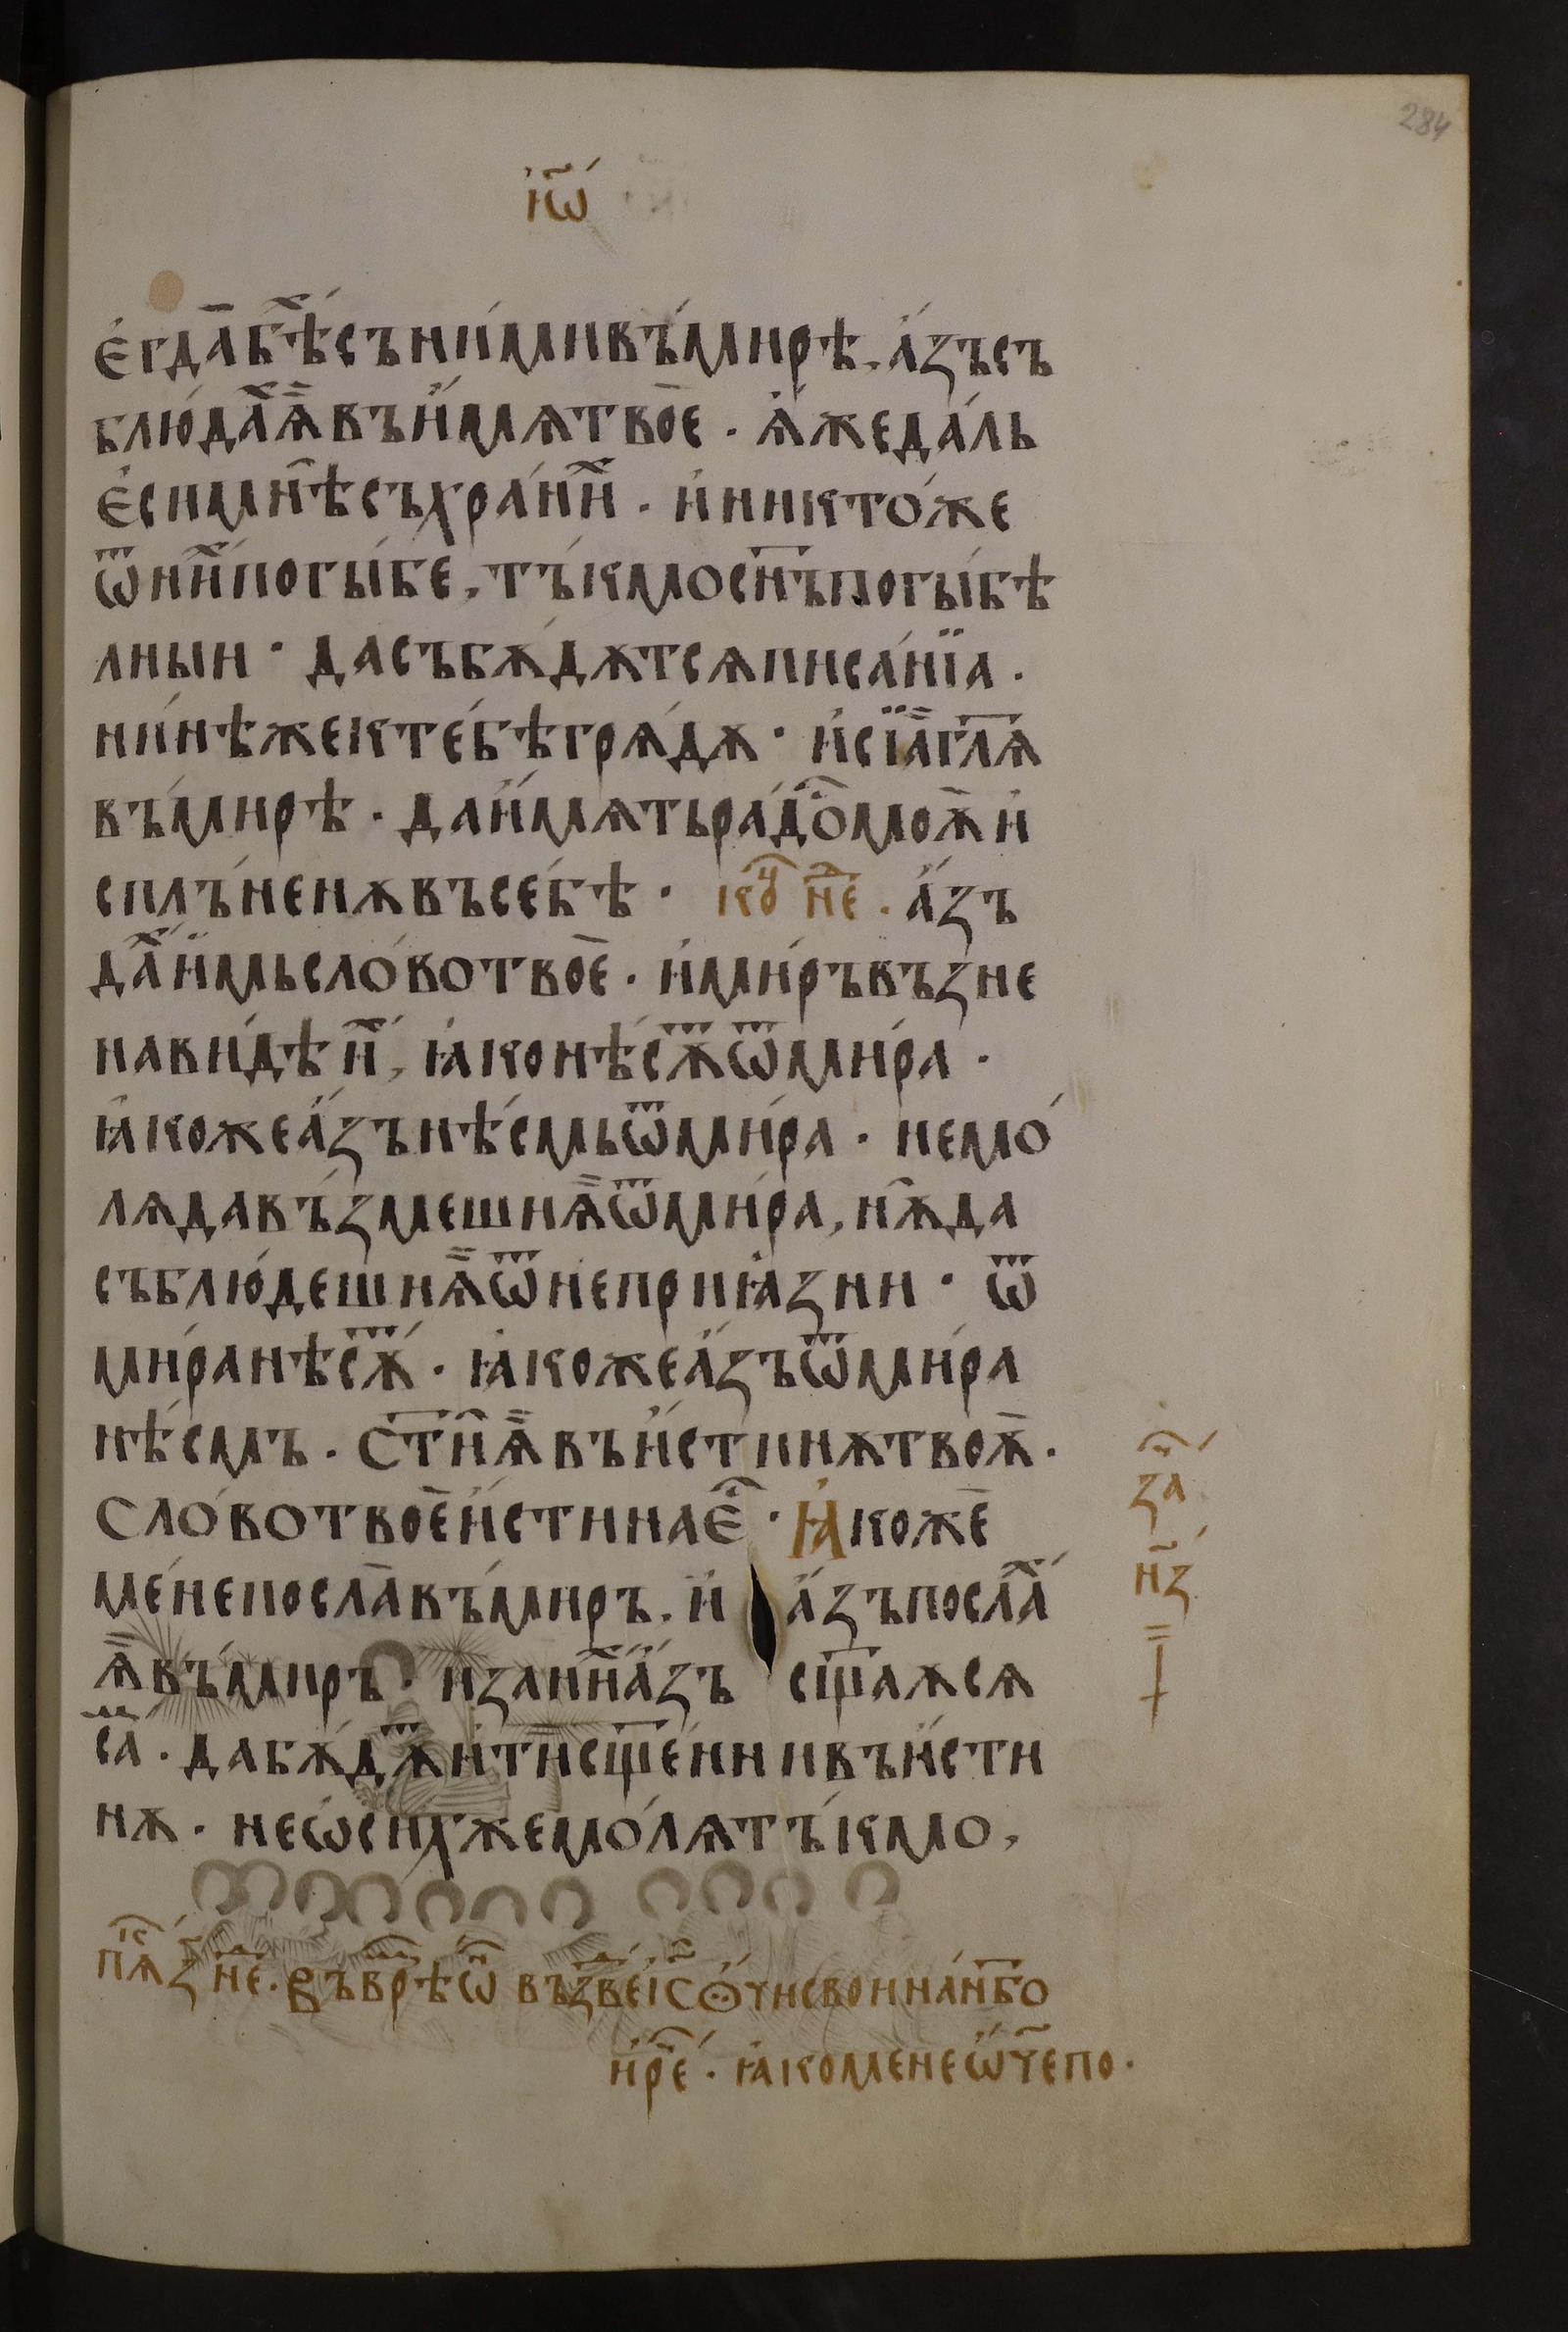 284
і҆ѡ҃
є҆гда̄бѣ́хсъни́мивъ́мирѣ. а҆́зъсъ
блю́даⷯѧ̏въи҆́мѧтвоē. ѧ҆̀жеда́ль
є҆симн҃ѣсъхра́ниⷯ. и҆никто́же
ѿниⷯпогы́бе, тъ́кмосн҃ъпогы́бѣ
лныи· дасъбѫ́дѫтсѧписа́нїа.
ни́нѣжектебѣ́грѧ́дѫ· и҆сїа̏гл҃ѧ
въ́мирѣ. даи҆́мѧтьра́доⷭмоѫ̄и҆
сплъ́ненѫвъсебѣ̀· коⷰ҇ неⷣ. а҆́зъ
даⷯи҆́мьсло́вотвоē. и҆ми́ръвъзне
нави́дѣиⷯ, ꙗ҆конѣ́сѫⷮѿми́ра.
ꙗ҆́кожеа҆́зънѣ́смьѿми́ра. немо́
лѧдавъ́змешинѧ̏ѿми́ра, нѫ̑да
съблю́дешинѧ̏ѿнеприꙗ́зни· ѿ
ми́ранѣ́сѫⷮ. ꙗ҆́кожеа҆́зъѿми́ра
нѣ́смъ. ст҃иѧ̏въи҆́стинѫтвоѫ̄.
сло́вотвоēи҆́стинаєⷭ҇· ꙗ҆́кожē
ме́непосла̄въ́миръ. и҆ а҆́зъпослаⷯ
ѧ̏въ́миръ· изаниⷯа҆́зъ сщ҃аѫсѧ
саⷨ. дабѫ́дѫⷮи҆тїисщ҃е́ниивъи҆́сти
нѫ. неѡ҆си́хжемо́лѧтъ́кмо,
заⷱ҇
н҃з
пѧⷦ҇ з҃ неⷣ. въврⷨѣѡⷩ възⷡведеі҆с҃ѻ҆́чисвоинан҃бо
и҆реⷱ҇. ꙗ҆комене́ѡ҆ч҃епо.